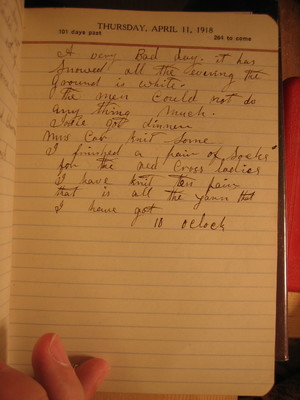 THURSDAY, APRIL 11, 1918
101 days past 264 to come
A very Bad day. it has
snowed all the evening the
ground is white.
the men could not do
any thing much.
got dinner
Mrs Cox knit some
I finished a pair of Socks
for the red Cross ladies
I have knit ten pair
that is all the yarn that
I have got
10 oclock